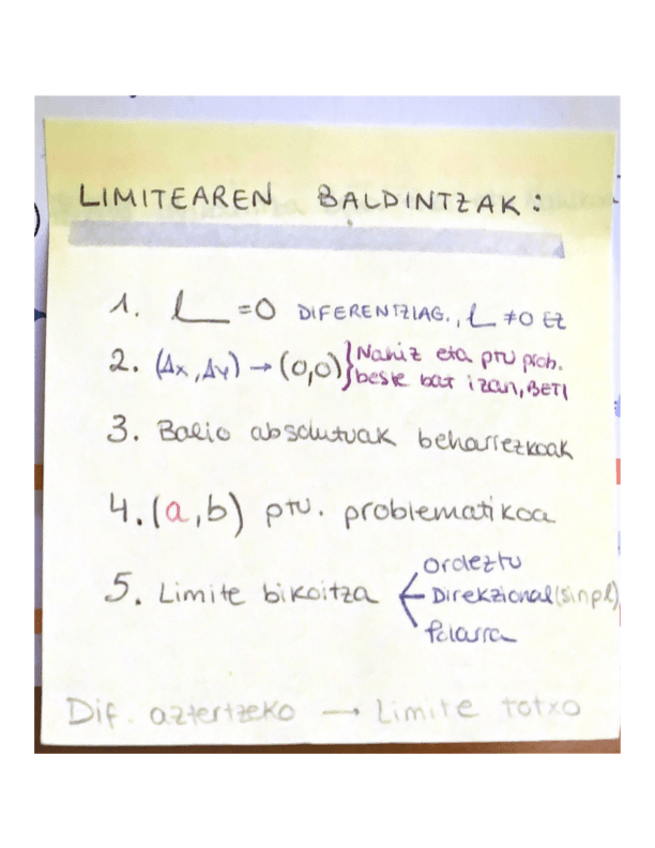 LIMITEAREN BALDINTZAK:
1. L = 0 DIFERENTZIAG., L ≠ 0 EZ
2. (Δx, Δy) → (0,0) } Nahiz eta ptu prob.
beste bat izan, BETI
3. Balio absolutuak beharrezkoak
4. (a,b) ptu. problematikoa
5. Limite bikoitza
ordeztu
Direkzional (sinpl)
Polarra
Dif. aztertzeko → Limite totxo